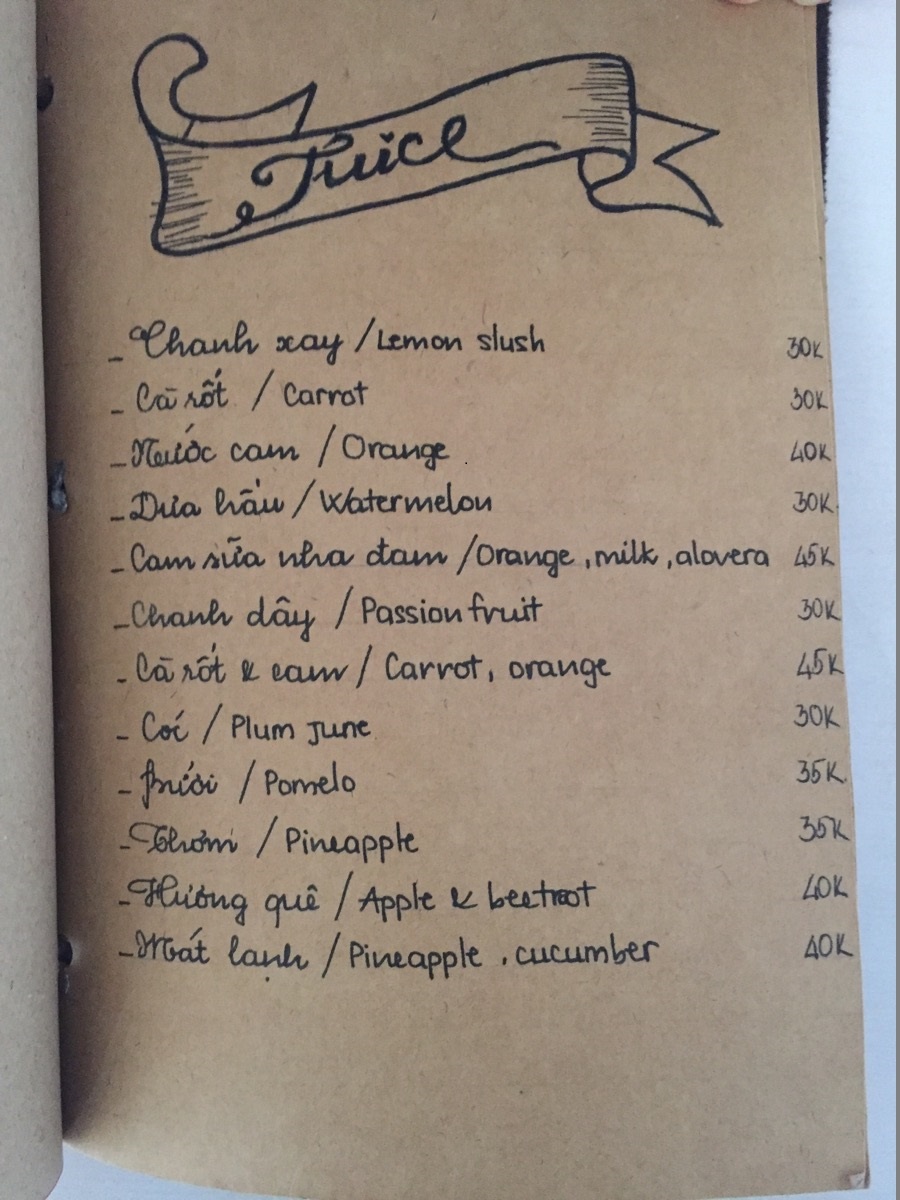 Juice
- Chanh xay / Lemon slush 30K
- Cà rốt / Carrot 30K
- Nước cam / Orange 40K
- Dưa hấu / Watermelon 30K
- Cam sữa nha đam / Orange, milk, alovera 45K
- Chanh dây / Passion fruit 30K
- Cà rốt & cam / Carrot, orange 45K
- Cóc / Plum June 30K
- Bưởi / Pomelo 35K
- Thơm / Pineapple 35K
- Hương quê / Apple & beetroot 40K
- Mát lạnh / Pineapple, cucumber 40K